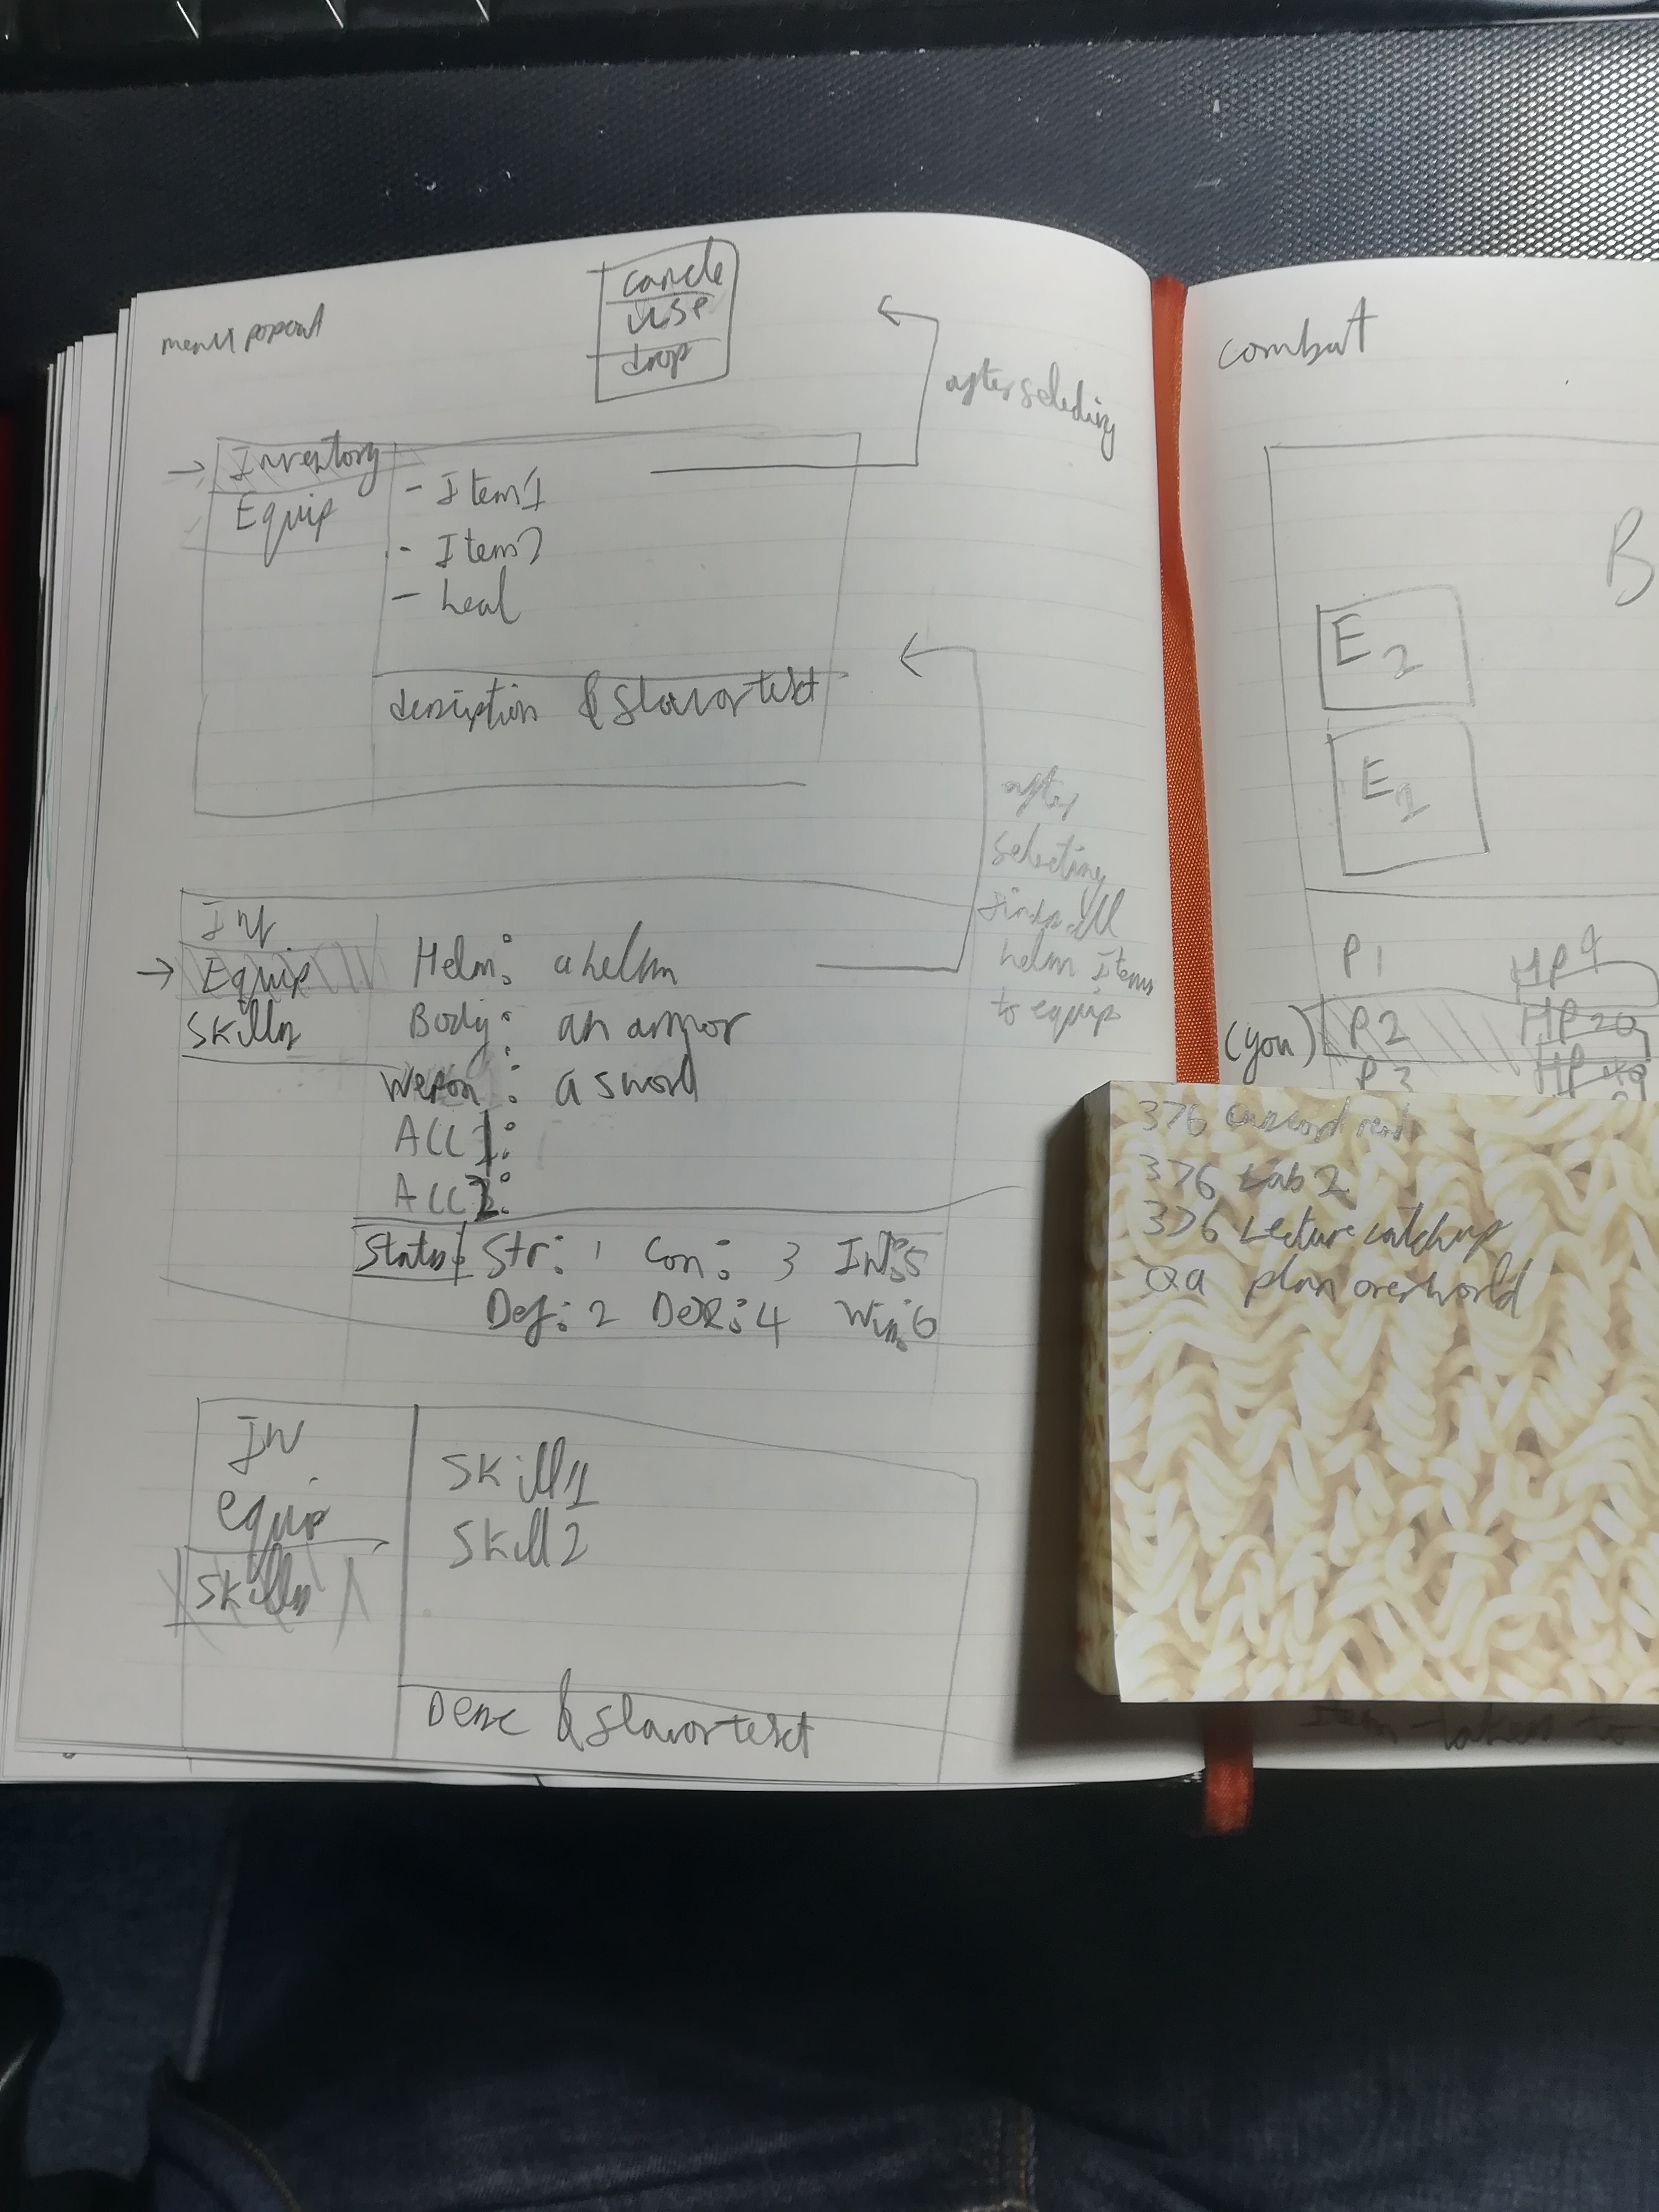 menu popout
cancle
use
drop
after selecting
Inventory
Equip
- Item1
- Item2
- heal
description & flavortext
after
selecting
helm Items
to equip
Inv
Equip
Skills
Helm: a helm
Body: an armor
Wepon: a sword
Acc1:
Acc2:
Status Str: 1 Con: 3 Int: 5
Def: 2 Dex: 4 Wis: 6
Inv
equip
Skills
Skill1
Skill2
Desc & flavortext
combat
B
E2
E1
P1 HP 9
(you) P2 HP 20
P3 HP
376
376 Lab 2
376 Lecture catchup
QA plan overworld
Item taken to